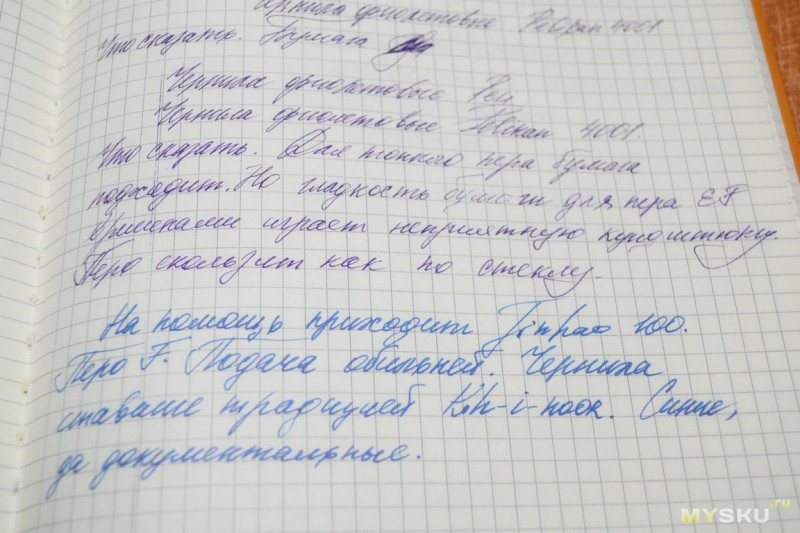 Чернила фиолетовые Pelikan 4001
Что сказать. Бумага
Чернила фиолетовые Pen
Чернила фиолетовые Pelikan 4001
Что сказать. Для тонкого пера бумага
подходит. Но гладкость бумаги для пера EF
временами играет неприятную шутку.
Перо скользит как по стеклу.
На помощь приходит Jinhao 100.
Перо F. Подача обильней. Чернила
ставшие традицией Koh-i-noor. Синие,
да документальные.
MYSKU.ru